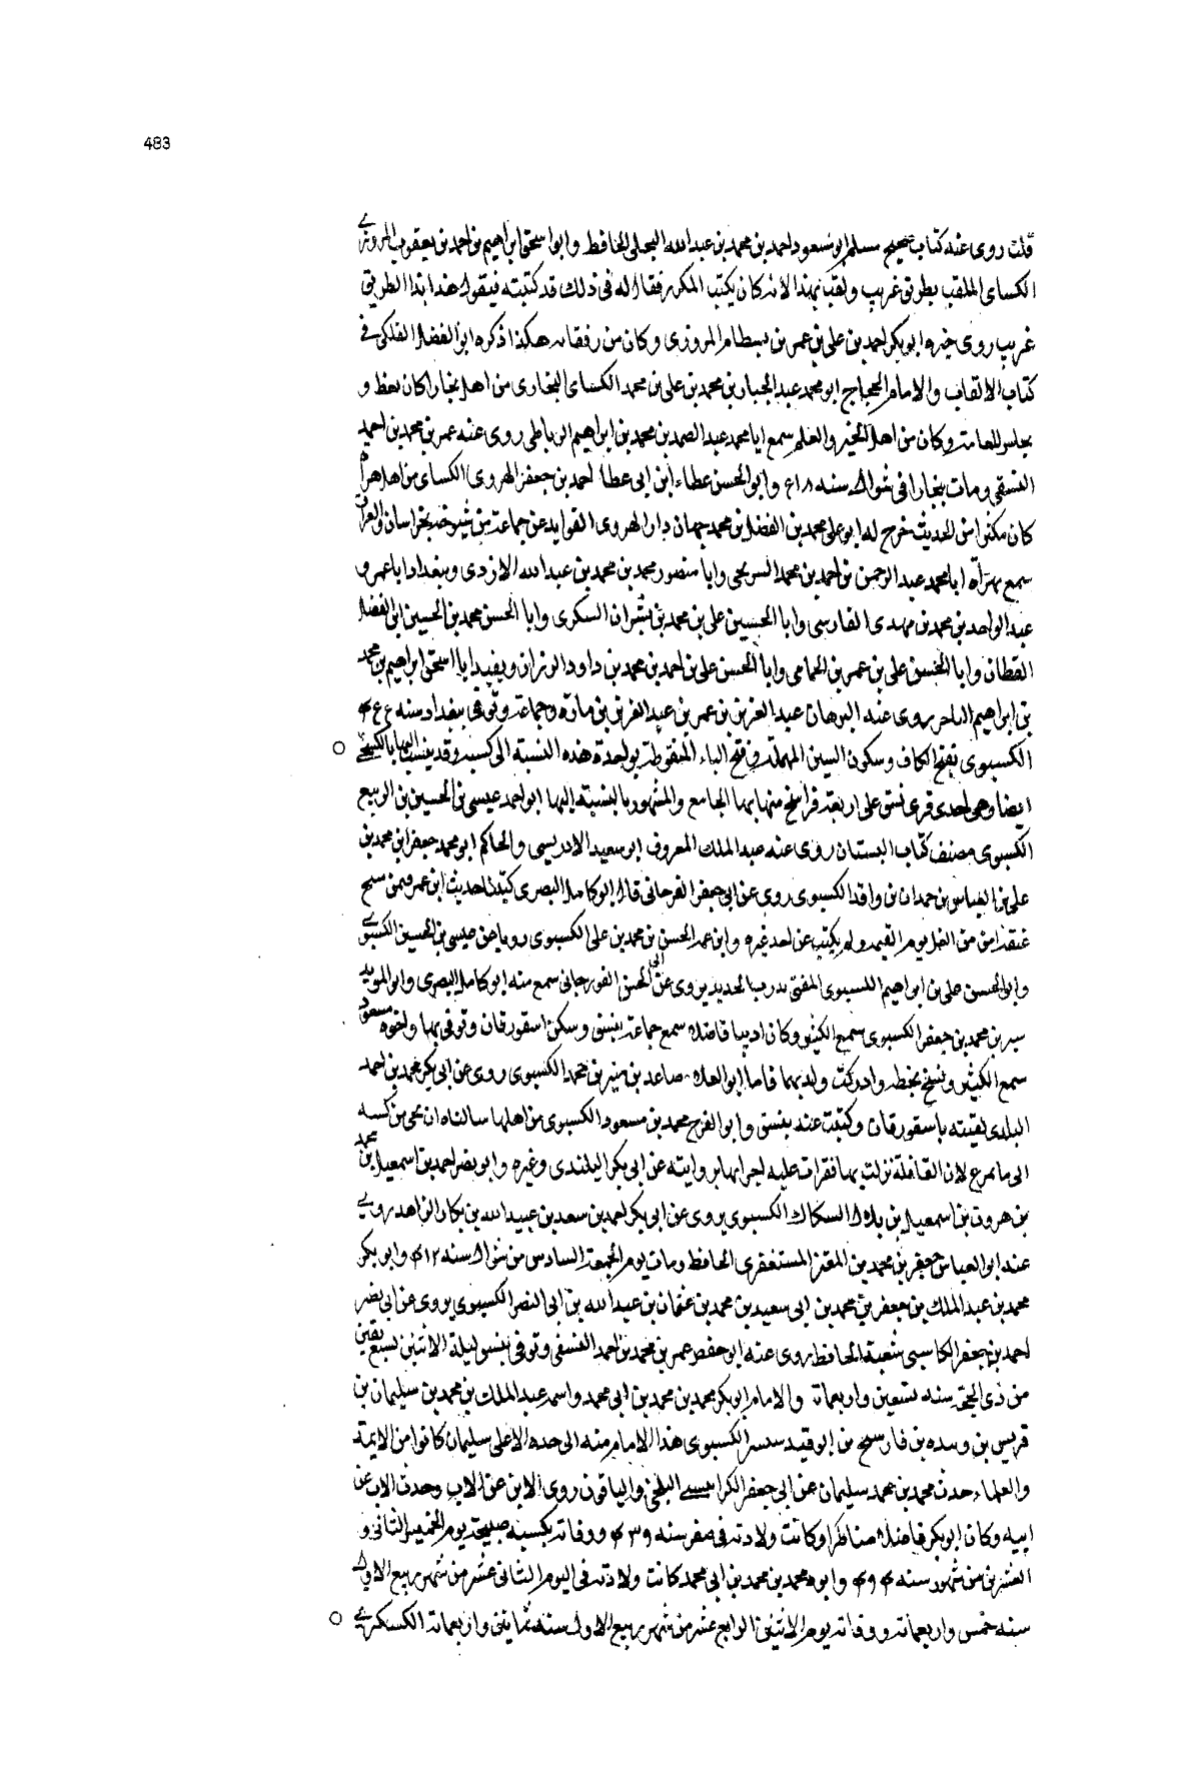 483
قلت روى عنه كتاب صحيح مسلم ابو مسعود احمد بن محمد بن عبد الله البجلى الحافظ وابو اسحق ابراهيم بن احمد بن يعقوب المروزى
الكساى الملقب بطريق غريب ولقب بهذا لانه كان يكتب المكرر فقال له فى ذلك قد كتبته فيقول هذا بذا الطريق
غريب روى خبره ابو بكر احمد بن على بن عمر بن بسطام المروزى وكان من رفقائه هكذا ذكره ابو الفضل الفلكى فى
كتاب الالقاب والامام الحجاج ابو محمد عبد الجبار بن محمد بن على بن محمد الكساى البخارى من اهل بخارا كان يعظ و
يجلس للعامة وكان من اهل الخير والعلم سمع ابا محمد عبد الصمد بن محمد بن ابراهيم الرباطى روى عنه عمر بن محمد بن احمد
النسفى ومات بخارا فى شوال سنه ٤١٨ وابو الحسن عطاء ابن ابى عطا احمد بن جعفر الهروى الكساى من اهل هراة
كان مكثرا من الحديث خرج له ابو على محمد بن الفضل بن محمد جهان دار الهروى الفوايد عن جماعة من شيوخه بخراسان والعراق
سمع بهراة ابا محمد عبد الرحمن بن احمد بن محمد السريحى وابا منصور محمد بن محمد بن عبد الله الازدى وببغداد ابا عمر و
عبد الواحد بن محمد بن مهدى الفارسى وابا الحسين على بن محمد بن بشران السكرى وابا الحسن محمد بن الحسين ابن الفضل
القطان وابا الحسن على بن عمر بن الحمامى وابا الحسن على بن احمد بن محمد بن داود الرزان وبفيد ابا اسحق ابراهيم بن محمد
بن ابراهيم روى عنه البرهان عبد العزيز بن عمر بن عبد العزيز بن مازة وجماعة وتوفى ببغداد سنه
الكسبوى بفتح الكاف وسكون السين المهملة وفتح الباء المنقوطة بواحدة هذه النسبة الى كسبه وقد ينسب اليها بالكسبجى
ايضا وهى احدى قرى نسف على اربعة فراسخ منها بها الجامع والمشهور بالنسبة اليها ابو احمد عيسى بن الحسين بن الربيع
الكسبوى مصنف كتاب البستان روى عنه عبد الملك المعروف ابو سعيد الادريسى والحاكم ابو محمد جعفر ابن محمد بن
على بن العباس بن حمدان بن واقد الكسبوى روى عن ابى جعفر الفرحانى قال ابو كامل البصرى كتبنا حديث ابن عمر فيمن سبح
من الغل يوم القيمه ولم يكتب عن احد غيره وابن عمه الحسن بن محمد بن على الكسبوى رويا عن عيسى بن الحسين الكسبوى
وابو الحسن على بن ابراهيم الكسبوى المفتى بدرب الحديد يروى عن ابى الحسن الفورجانى سمع منه ابو كامل البصرى وابو المويد
بن محمد بن جعفر الكسبوى سمع الكثير وكان اديبا فاضلا سمع جماعة بنسف وسكن اسفورقان وتوفى بها واخوه مسعود
سمع الكثير ونسخ بخطه وادركت ولديهما فاما ابو العلاء صاعد بن منير بن محمد الكسبوى روى عن ابى بكر محمد بن احمد
البلدى لقيته باسفورقان وكتبت عنه بنسف وابو الفرج محمد بن مسعود الكسبوى من اهلها سالناه ان يجى من كسبه
الى لان القافلة نزلت بها فقرات عليه اجزا بها بروايته عن ابى بكر البلدى وغيره وابو نصر احمد بن اسمعيل بن محمد
بن هرون بن اسمعيل بن بلال السكاك الكسبوى يروى عن ابى بكر احمد بن سعد بن عبيد الله بن بكار الزاهد روى
عنه ابو العباس جعفر بن محمد بن المعتز المستغفرى الحافظ ومات يوم الجمعة السادس من شوال سنه ٤١٢ وابو بكر
محمد بن عبد الملك بن جعفر بن محمد بن ابى سعيد بن محمد بن عثمان بن عبد الله بن ابى النصر الكسبوى يروى عن ابى نصر
احمد بن جعفر الكاسى شعبة الحافظ روى عنه ابو حفص عمر بن محمد بن احمد النسفى وتوفى بنسف ليلة الاثنين لسبع بقين
من ذى الحجة سنه تسعين واربعمائة والامام ابو بكر محمد بن محمد بن ابى محمد واسمه عبد الملك بن محمد بن سليمان بن
قريس بن الكسبوى هذا الامام منه الى جده الاعلى سليمان كانوا من الايمة
والعلماء حدث محمد بن محمد سليمان عن ابى جعفر الكرابيسى البلخى والباقون روى الابن عن الاب وحدث الاب عن
ابيه وكان ابو بكر فاضلا مناظرا وكانت ولادته فى صفر سنه ٤٣٩ ووفاته بكسبه صبيحة يوم الخميس الثانى و
العشرين من شهور سنه ٤٩٤ وابوه محمد بن محمد بن ابى محمد كانت ولادته فى اليوم الثانى عشر من شهر ربيع الاول
سنه خمس واربعمائه ووفاته يوم الاثنين الرابع عشر من شهر ربيع الاول سنه ثمانين واربعمائة الكسكرى